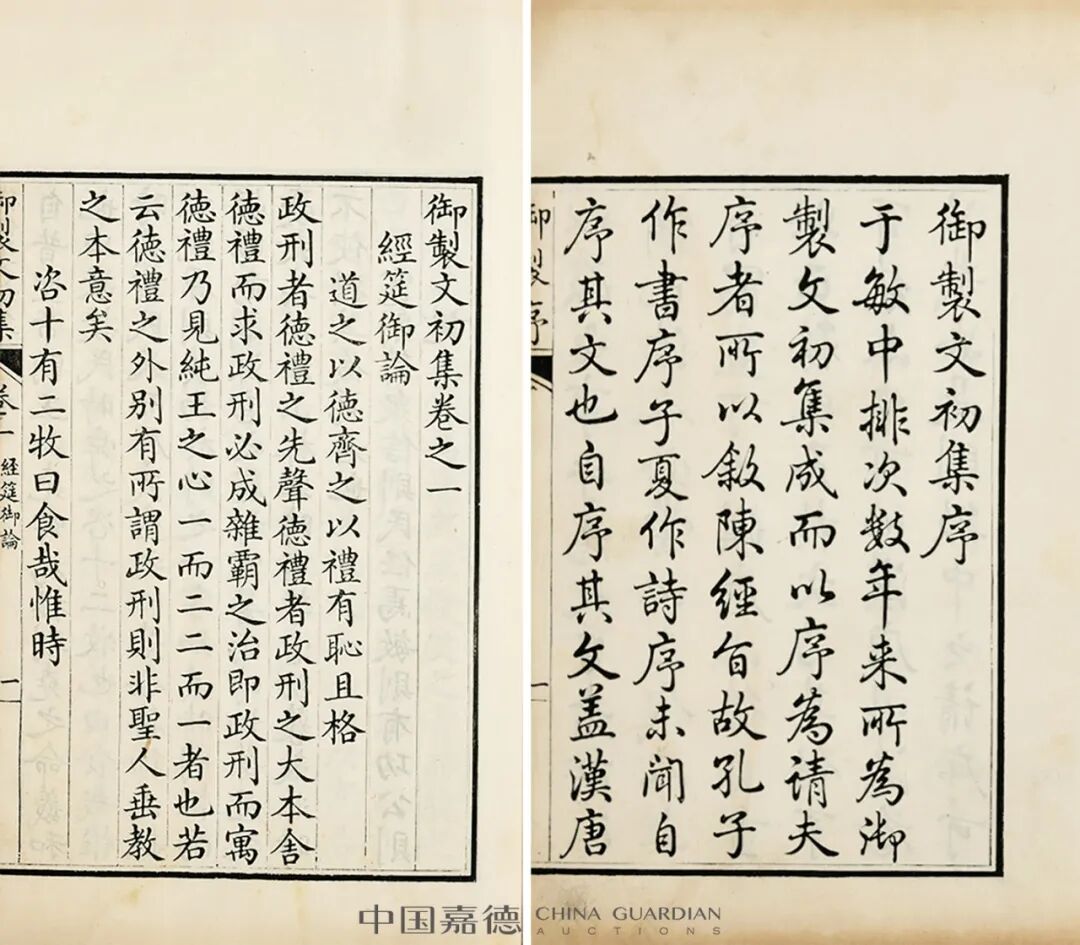 御製文初集序
于敏中排次數年来所為御
製文初集成而以序為請夫
序者所以敘陳經旨故孔子
作書序子夏作詩序未聞自
序其文也自序其文盖漢唐
御製序
御製文初集卷之一
經筵御論
道之以德齊之以禮有恥且格
政刑者德禮之先聲德禮者政刑之大本舎
德禮而求政刑必成雜霸之治即政刑而寓
德禮乃見純王之心一而二二而一者也若
云德禮之外别有所謂政刑則非聖人垂教
之本意矣
咨十有二牧曰食哉惟時
御製文初集
卷之一
經筵御論
一
中国嘉德
CHINA GUARDIAN
AUCTIONS